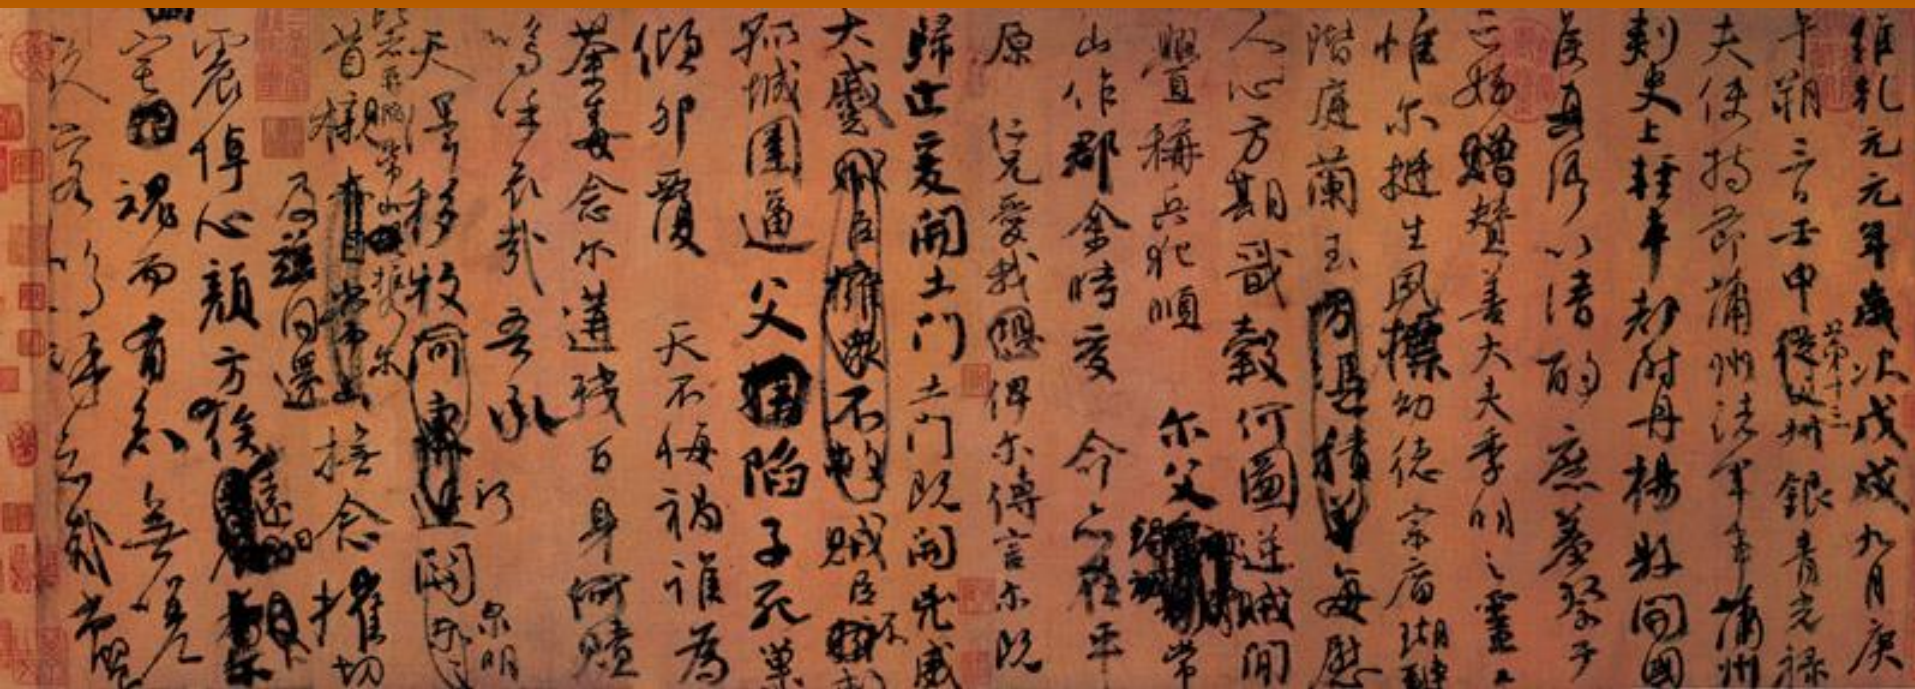 維乾元元年歲次戊戌九月庚
午朔三日壬申第十三從父叔銀青光祿
夫使持節蒲州諸軍事蒲州
刺史上輕車都尉丹楊縣開國
侯真卿以清酌庶羞祭于
亡姪贈贊善大夫季明之靈曰
惟爾挺生夙標幼德宗廟瑚璉
階庭蘭玉方憑積善每慰
人心方期戩穀何圖逆賊間
釁稱兵犯順爾父竭誠常
山作郡余時受命亦在平
原仁兄愛我俾爾傳言爾既
歸止爰開土門土門既開兇威
大蹙賊臣擁眾不救賊臣不救
孤城圍逼父陷子死巢
傾卵覆天不悔禍誰為
荼毒念爾遘殘百身何贖
嗚呼哀哉吾承
天澤移牧河關泉明
比者再陷常山攜爾
首櫬及茲同還撫念摧切
震悼心顏方俟遠日
宅魂而有知無嗟
久客嗚呼哀哉尚饗